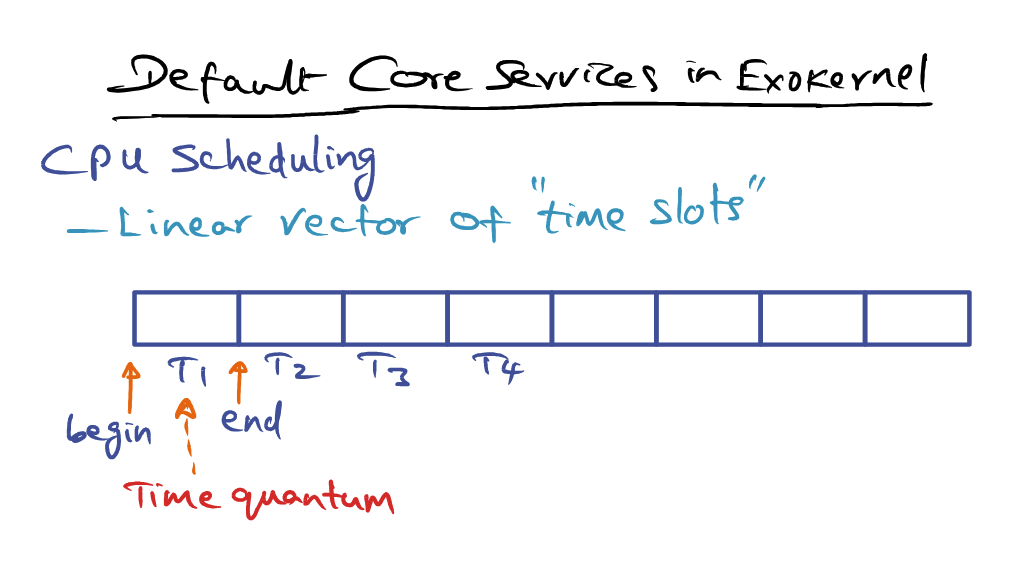 Default Core Services in Exokernel
CPU Scheduling
- Linear vector of "time slots"
T1 T2 T3 T4
begin end
Time quantum